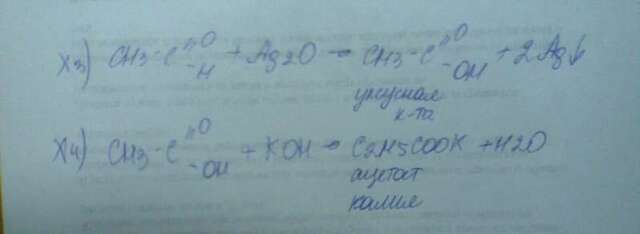 X3) CH3-C =O -H + Ag2O → CH3-C =O -OH + 2Ag↓
уксусная
к-та
X4) CH3-C =O -OH + KOH → C2H5COOK + H2O
ацетат
калия